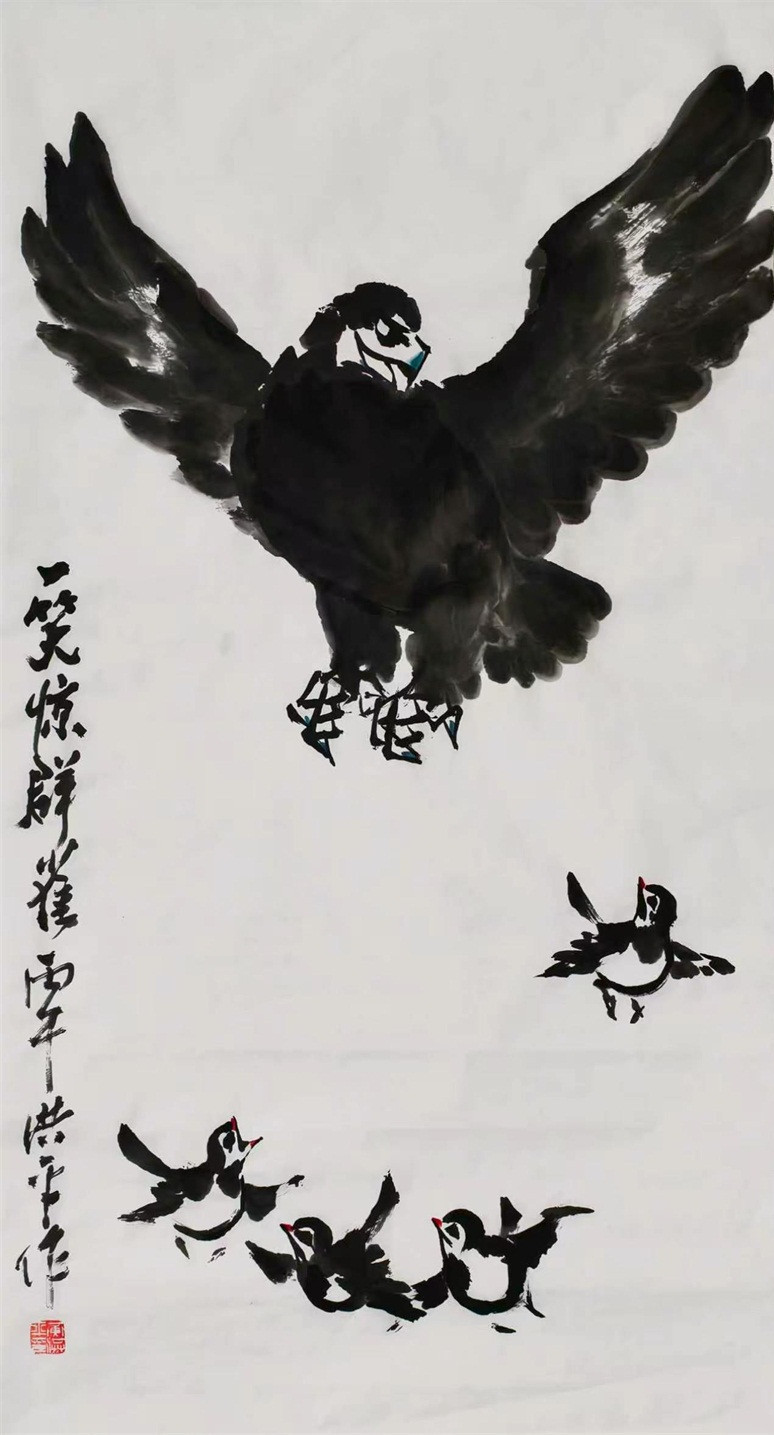 一笑惊群雀 丙午 洪平作